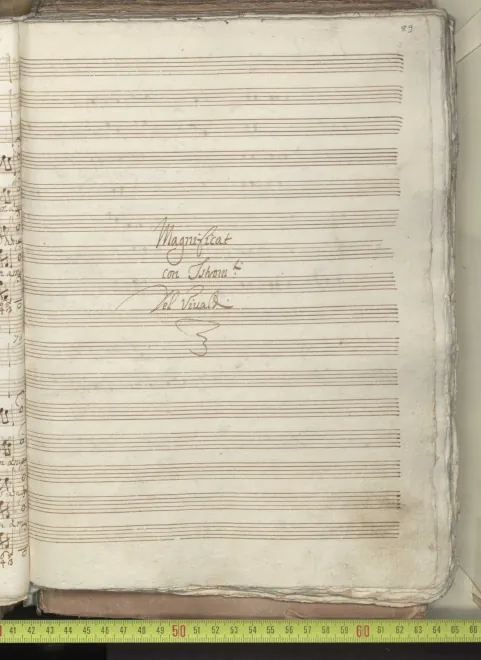 89
Magnificat
con Istrom.ti
Del Viualdi
41 42 43 44 45 46 47 48 49 50 51 52 53 54 55 56 57 58 59 60 61 62 63 64 65 66